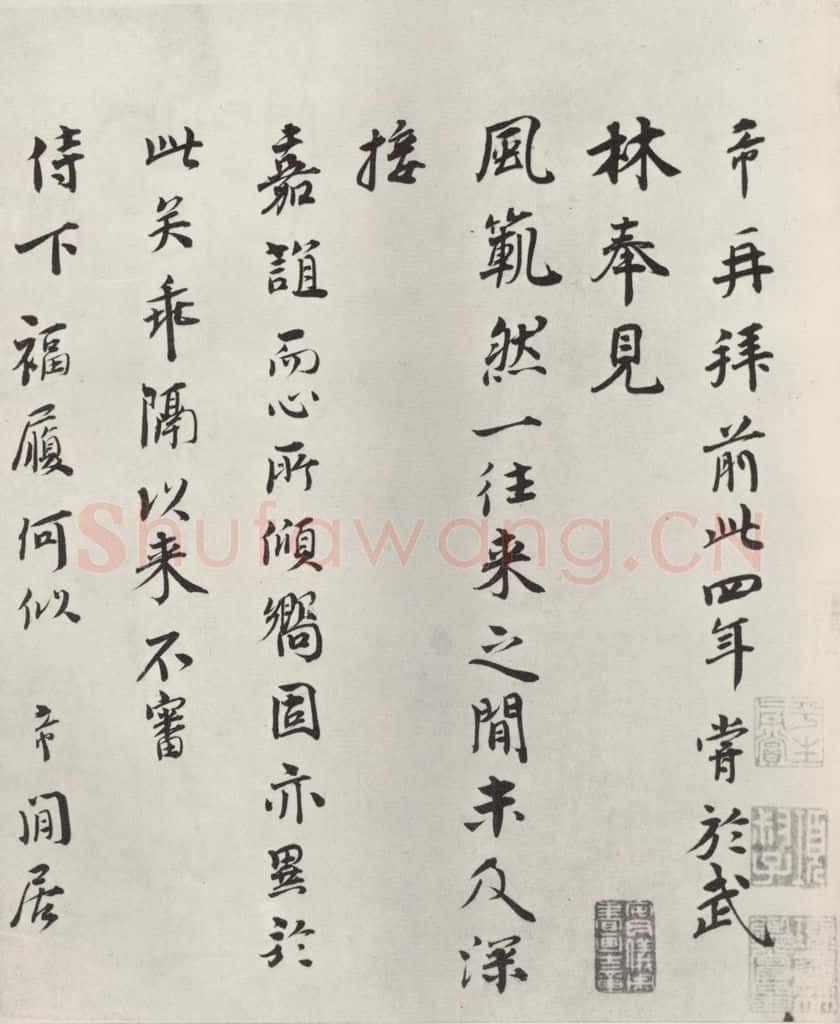 帝再拜前此四年嘗於武
林奉見
風範然一往来之間未及深
接
嘉誼而心所傾嚮固亦異於
此关乖隔以来不審
侍下福履何似帝閒居
Shufawang.CN
平生真賞
安儀周書畫之章